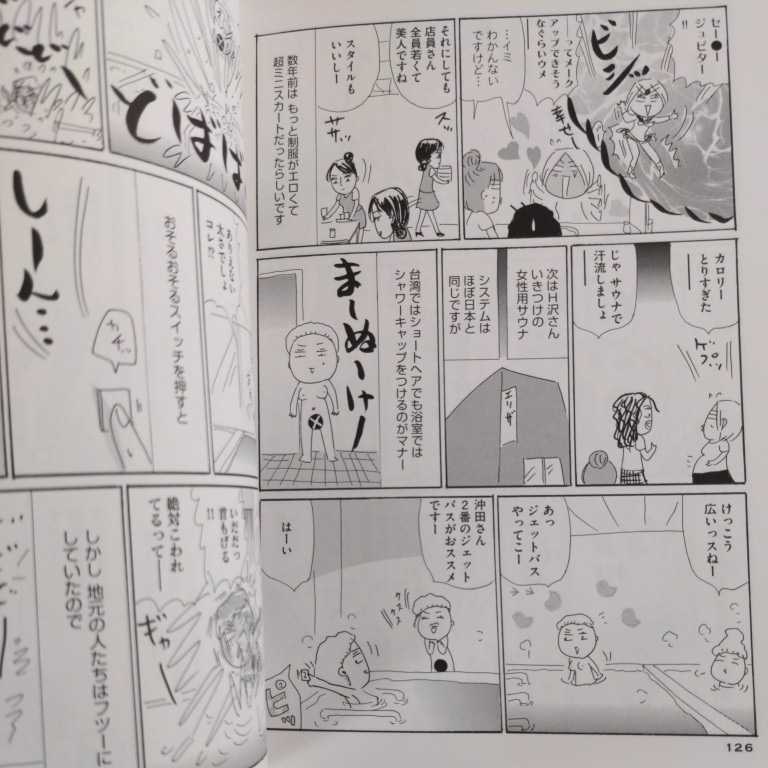 セー●ー
ジュピター
!!
ビジ
ってメーク
アップできそう
なぐらいウメ
幸せー
…イミ
わかんない
ですけど…
それにしても
店員さん
全員若くて
美人ですね
スタイルも
いいしー
ズッ
ササッ
数年前は もっと制服がエロくて
超ミニスカートだったらしいです
カロリー
とりすぎた
じゃ サウナで
汗流しましょ
ゲプッ
次はH沢さん
いきつけの
女性用サウナ
システムは
ほぼ日本と
同じですが
エリザ
台湾ではショートヘアでも浴室では
シャワーキャップをつけるのがマナー
まーぬーけー
けっこう
広いっスねー
あっ
ジェットバス
やってこー
沖田さん
2番のジェット
バスがおススメ
ですー
はーい
クスクス
ピッ
126
どばばば
ありえない
太さでしょ
コレ!?
おそるおそるスイッチを押すと
カチッ
しーん…
いだだっ
首もげる
!!
絶対こわれ
てるってー
ギャー
しかし 地元の人たちはフツーに
していたので